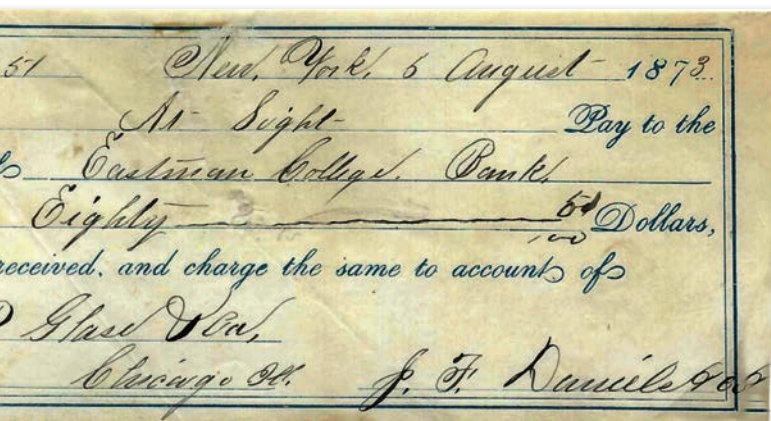 51 New York, 5 August 1873.
At Sight Pay to the
Eastman College Bank,
Eighty 51/100 Dollars,
received, and charge the same to account of
Glase & Co,
Chicago Ill. J. F. Daniels & Co